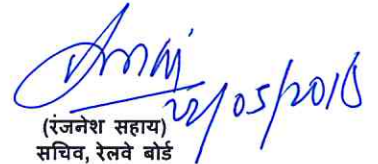 22/05/2018
(रंजनेश सहाय)
सचिव, रेलवे बोर्ड